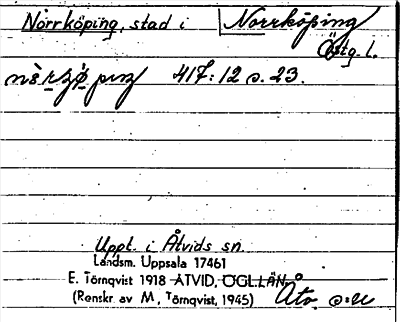 Norrköping, stad i Norrköping
Östg. l.
417:12 s. 23.
Uppt. i Åtvids sn
Landsm. Uppsala 17461
E. Törnqvist 1918 ÅTVID, ÖGL.LÄN
(Renskr. av M. Törnqvist, 1945) Åtv. s:n